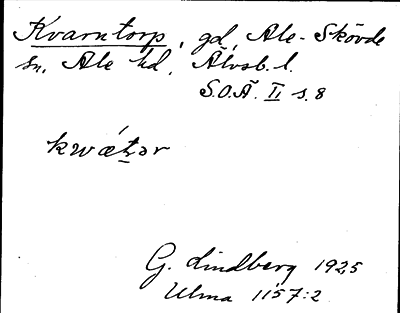 Kvarntorp, gd, Ale-Skövde
sn, Ale hd, Älvsb. l.
S.O.Ä. II s. 8
kwát̠ər
G. Lindberg 1925
Ulma 1157:2